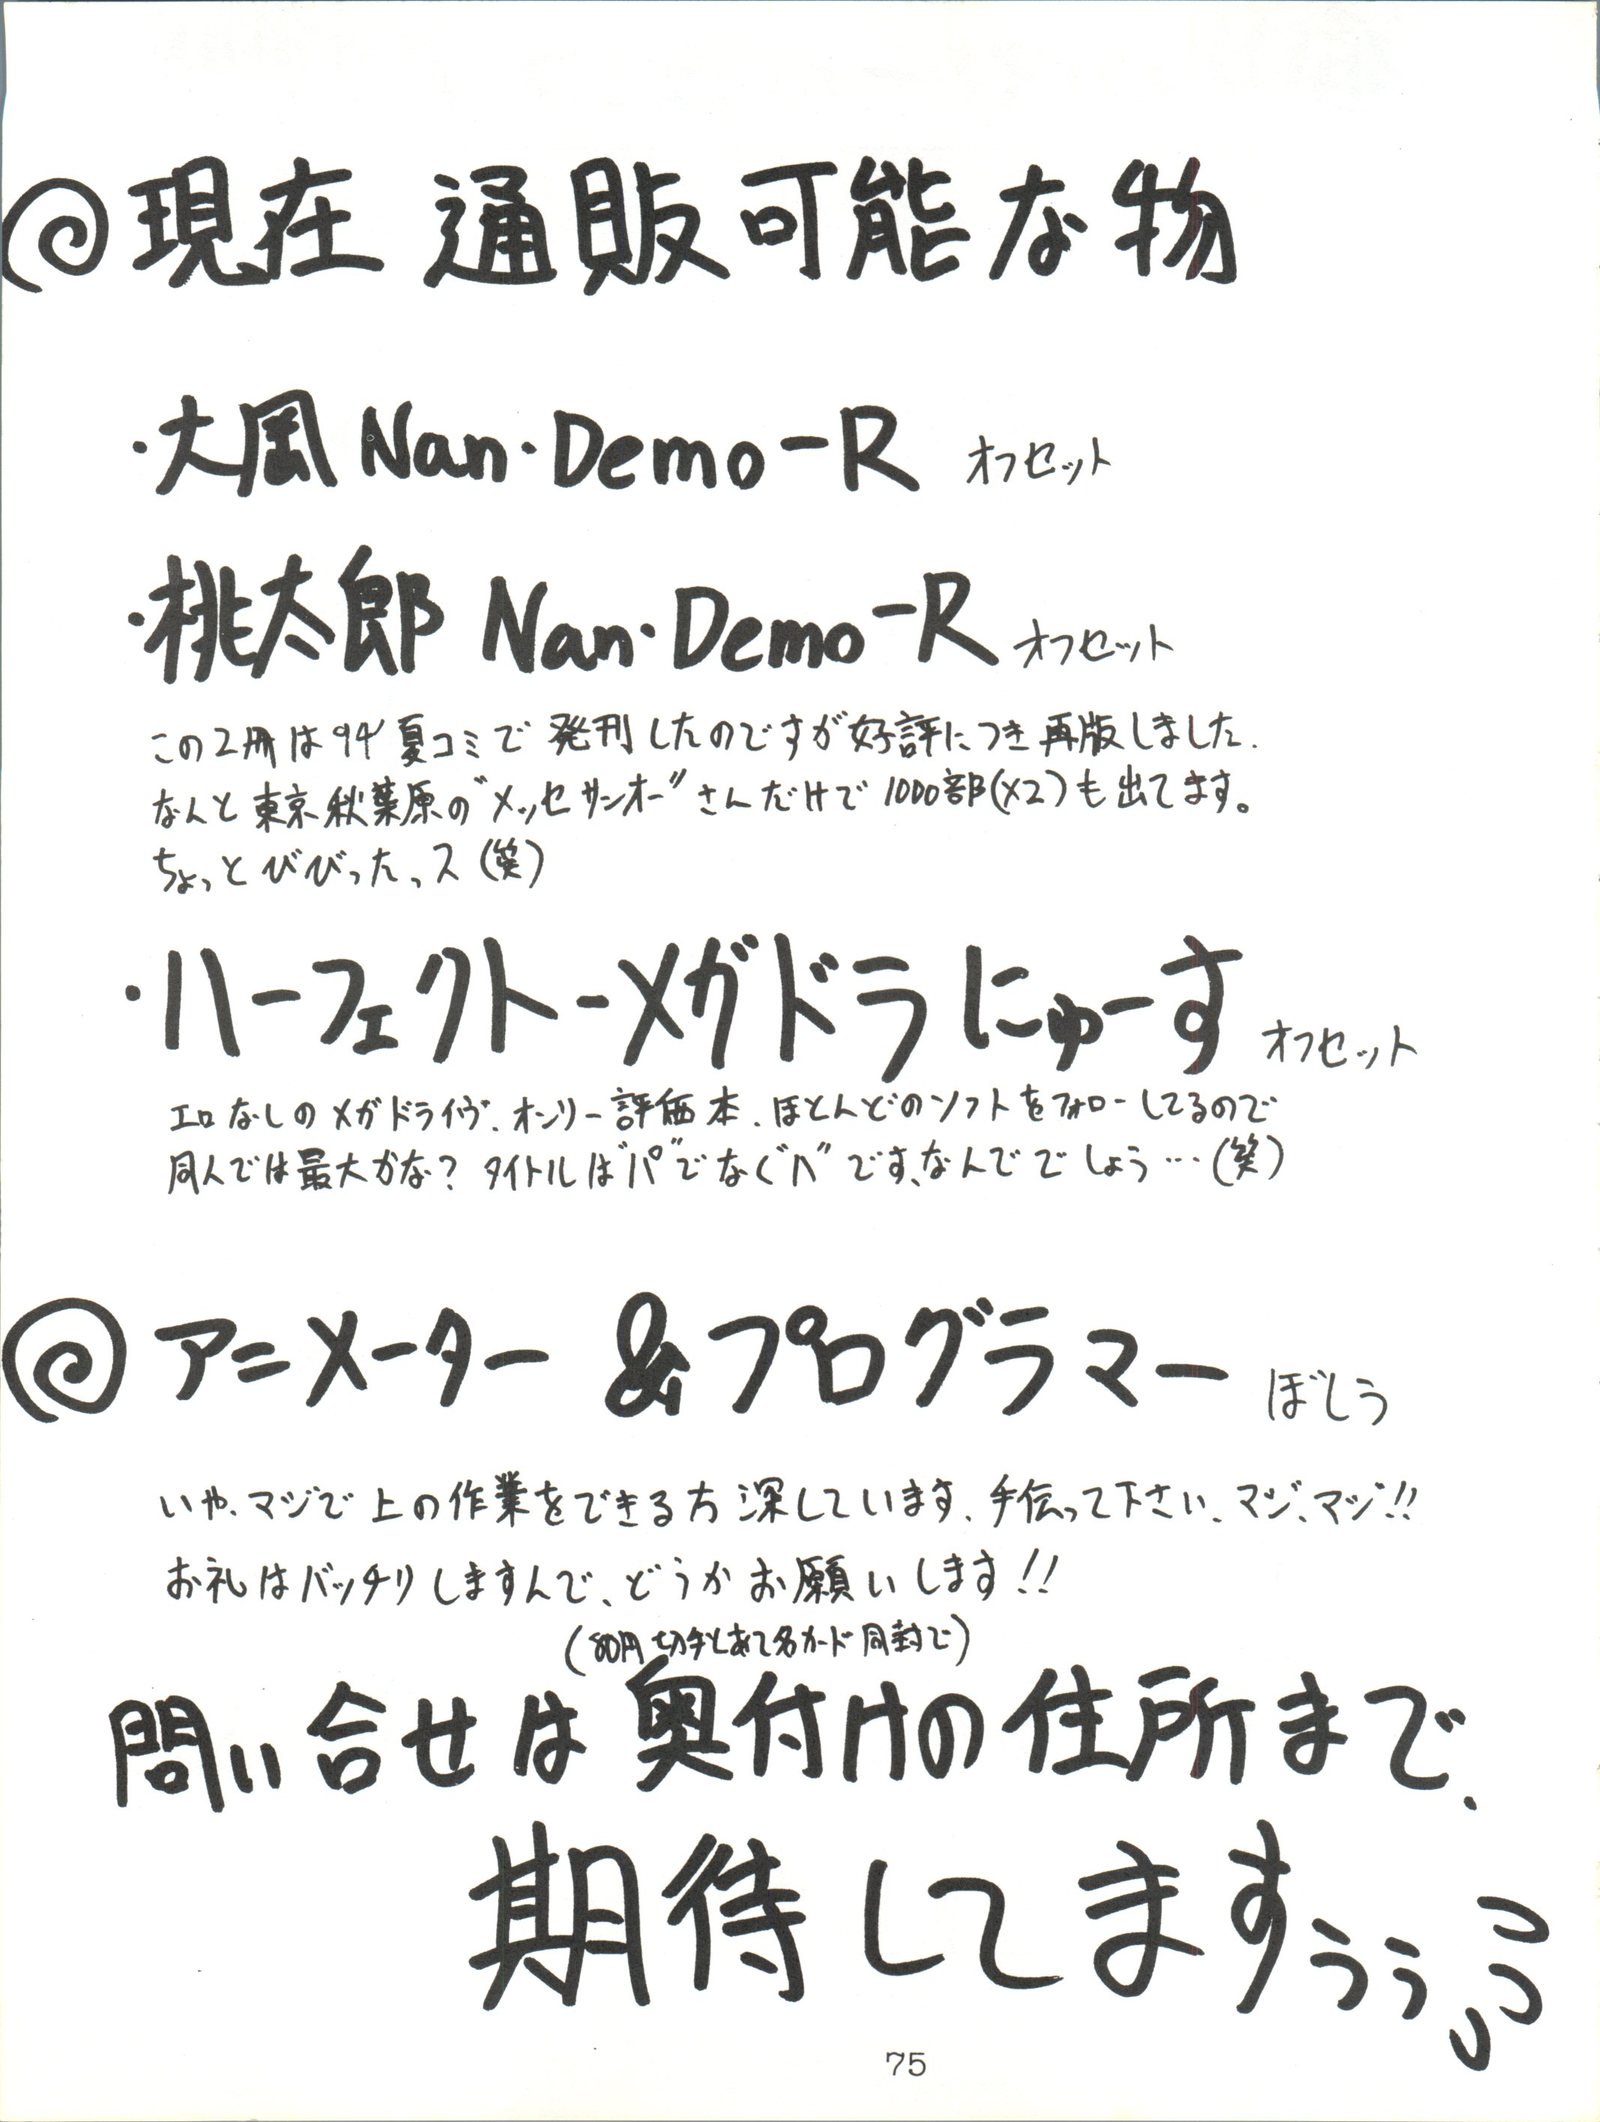 現在 通販可能な物
・大風 Nan・Demo-R オフセット
・桃太郎 Nan・Demo-R オフセット
この2冊は94'夏コミで発刊したのですが好評につき再版しました.
なんと東京秋葉原の"メッセサンオー"さんだけで1000部(×2)も出てます。
ちょっとびびったっス(笑)
・ハーフェクトーメガドラにゅーす オフセット
エロなしのメガドライヴ.オンリー評価本.ほとんどのソフトをフォローしてるので
同人では最大かな?タイトルは"パ"でなく"ハ"です、なんででしょう…(笑)
アニメーター&プログラマー ぼしう
いや、マジで上の作業をできる方深しています.手伝って下さい、マジ、マジ!!
お礼はバッチリしますんで、どうかお願いします!!
(80円切手とあて名カード同封で)
問い合せは奥付けの住所まで.
期待してますぅぅ
75